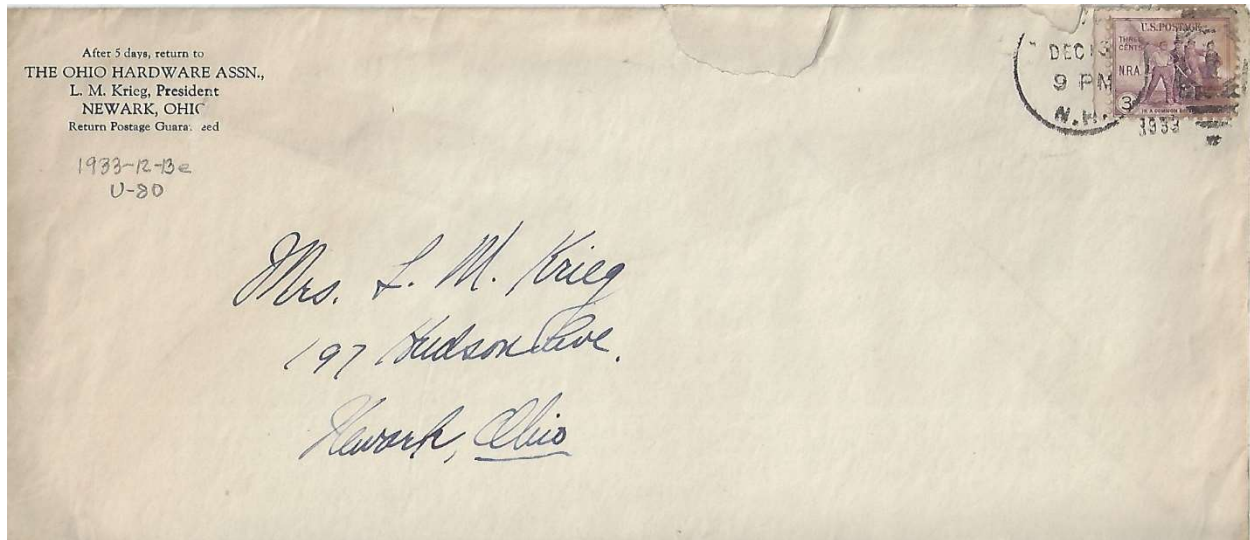 After 5 days, return to
THE OHIO HARDWARE ASSN.,
L. M. Krieg, President
NEWARK, OHIO
Return Postage Guaranteed
1933-12-13e
U-80
DEC 13
9 PM
N.H.
1933
U.S. POSTAGE
THREE
CENTS
NRA
3
IN A COMMON
Mrs. L. M. Krieg
197 Hudson Ave.
Newark, Ohio